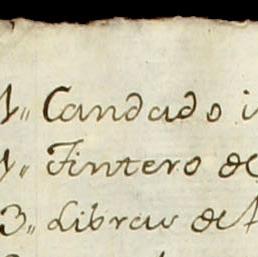 1,, Candado i
1,, Tintero de
3,, Libras de